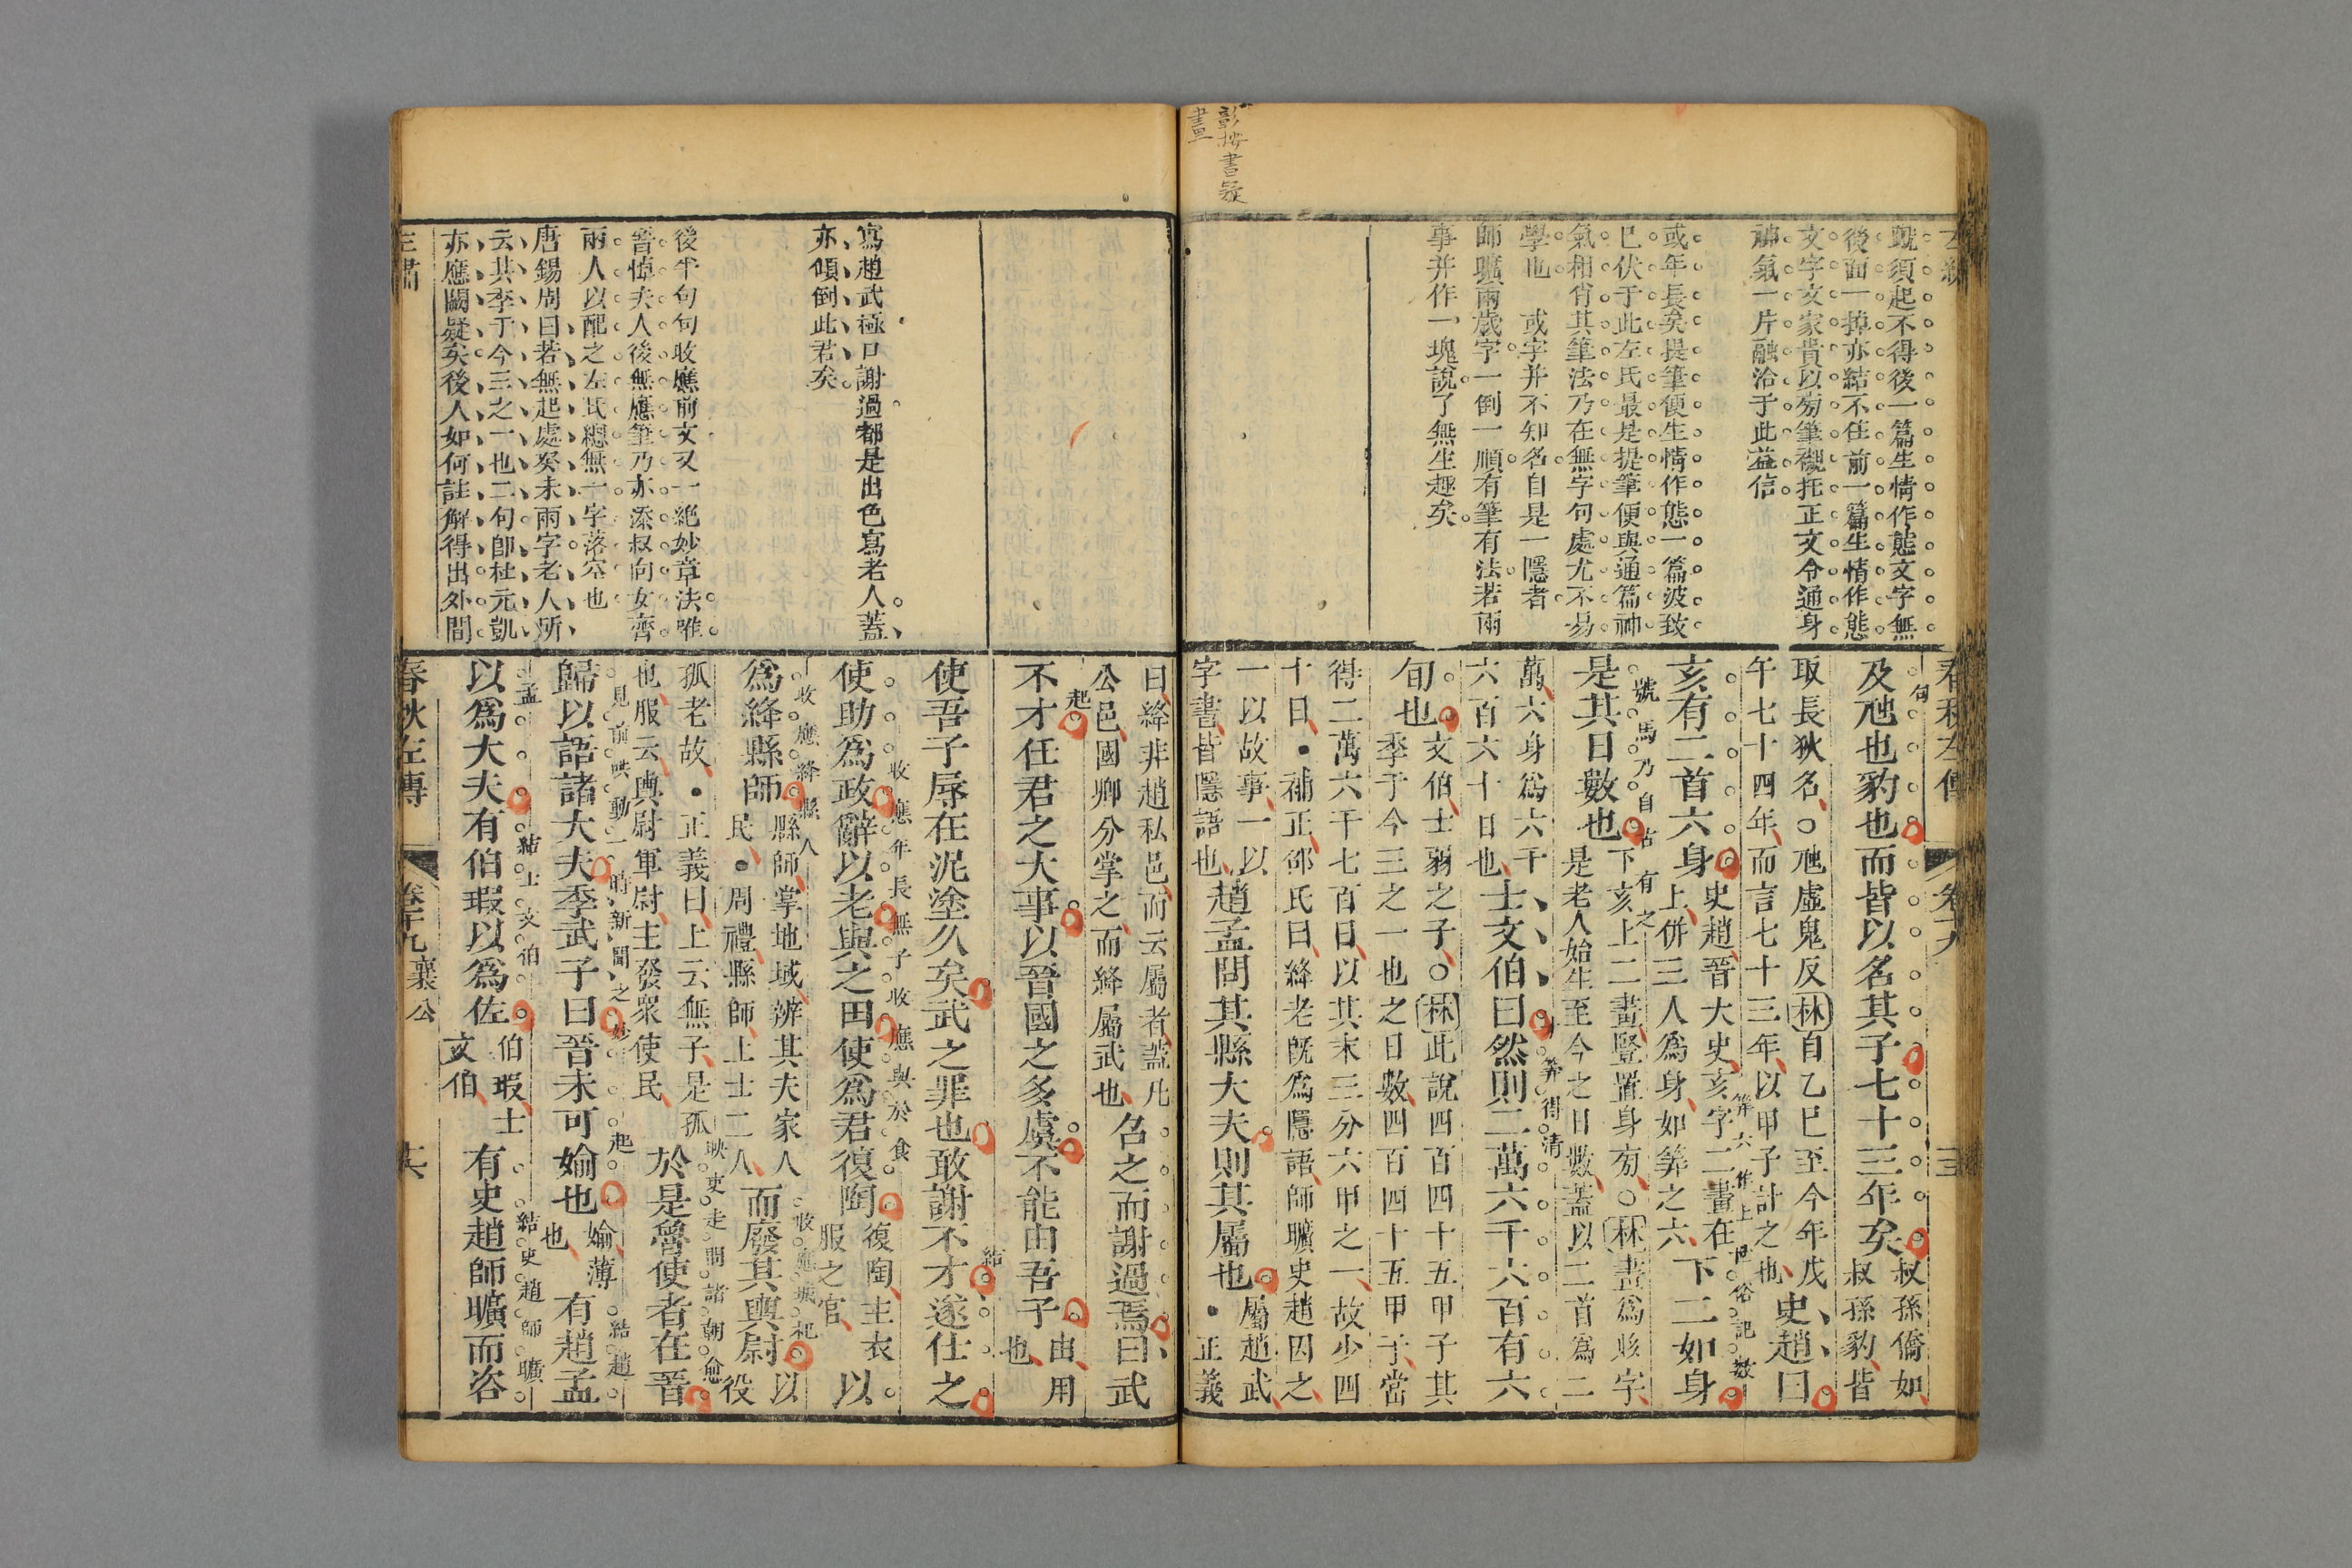 彭按書疑
畫
戰須起不得後一篇生情作態文字無
後面一掉亦結不住前一篇生情作態
文字文家貴以旁筆襯托正文令通身
神氣一片融洽于此益信
或年長矣提筆便生情作態一篇波致
已伏于此左氏最是提筆便與通篇神
氣相肖其筆法乃在無字句處尤不易
學也　或字并不知名自是一隱者
師曠兩歲字一倒一順有筆有法若兩
事并作一塊說了無生趣矣
春秋左傳
及虺也豹也而皆以名其子七十三年矣
叔孫僑如
叔孫豹皆
取長狄名○虺虛鬼反林自乙巳至今年戊
午七十四年而言七十三年以甲子計之也
史趙曰
亥有二首六身
史趙晉大史亥字二畫在
上併三人爲身如筭之六
下二如身
是其日數也
下亥上二畫豎置身旁○林畫爲亥字
是老人始生至今之日數蓋以二首爲二
萬六身爲六千
六百六十日也
士文伯曰然則二萬六千六百有六
旬也
文伯士弱之子○林此說四百四十五甲子其
季于今三之一也之日數四百四十五甲子當
得二萬六千七百日以其末三分六甲之一故少四
十日●補正邵氏曰絳老既爲隱語師曠史趙因之
一以故事一以
字書皆隱語也
趙孟問其縣大夫則其屬也
屬趙武
●正義
句
解六作上
世俗記數
號馬乃自古有之
筭得清
曰絳非趙私邑而云屬者蓋凡
公邑國卿分掌之而絳屬武也
召之而謝過焉曰武
不才任君之大事以晉國之多虞不能由吾子
由用
也
使吾子辱在泥塗久矣武之罪也敢謝不才遂仕之
使助爲政辭以老與之田使爲君復陶
復陶主衣
服之官
以
爲絳縣師
縣師掌地域辨其夫家人
民●周禮縣師上士二人
而廢其輿尉
以
役
孤老故●正義曰上云無子是孤
也服云輿尉軍尉主發衆使民
於是魯使者在晉
歸以語諸大夫季武子曰晉未可媮也
媮薄
也
有趙孟
以爲大夫有伯瑕以爲佐
伯瑕士
文伯
有史趙師曠而咨
起
結
收應年長無子
收應與於食
收應絳縣人
收應城杞
映吏走問諸朝愈
見前哄動一時新聞之妙
起
結趙
孟
結士文伯
結史趙師曠
寫趙武極口謝過都是出色寫老人蓋
亦傾倒此君矣
後半句句收應前文又一絕妙章法唯
晉悼夫人後無應筆乃亦添叔向女齊
兩人以配之左氏總無一字落空也
唐錫周曰若無起處癸未兩字老人所
云其季于今三之一也二句卽杜元凱
亦應闕疑矣後人如何註解得出外間
春秋左傳
卷十九襄公